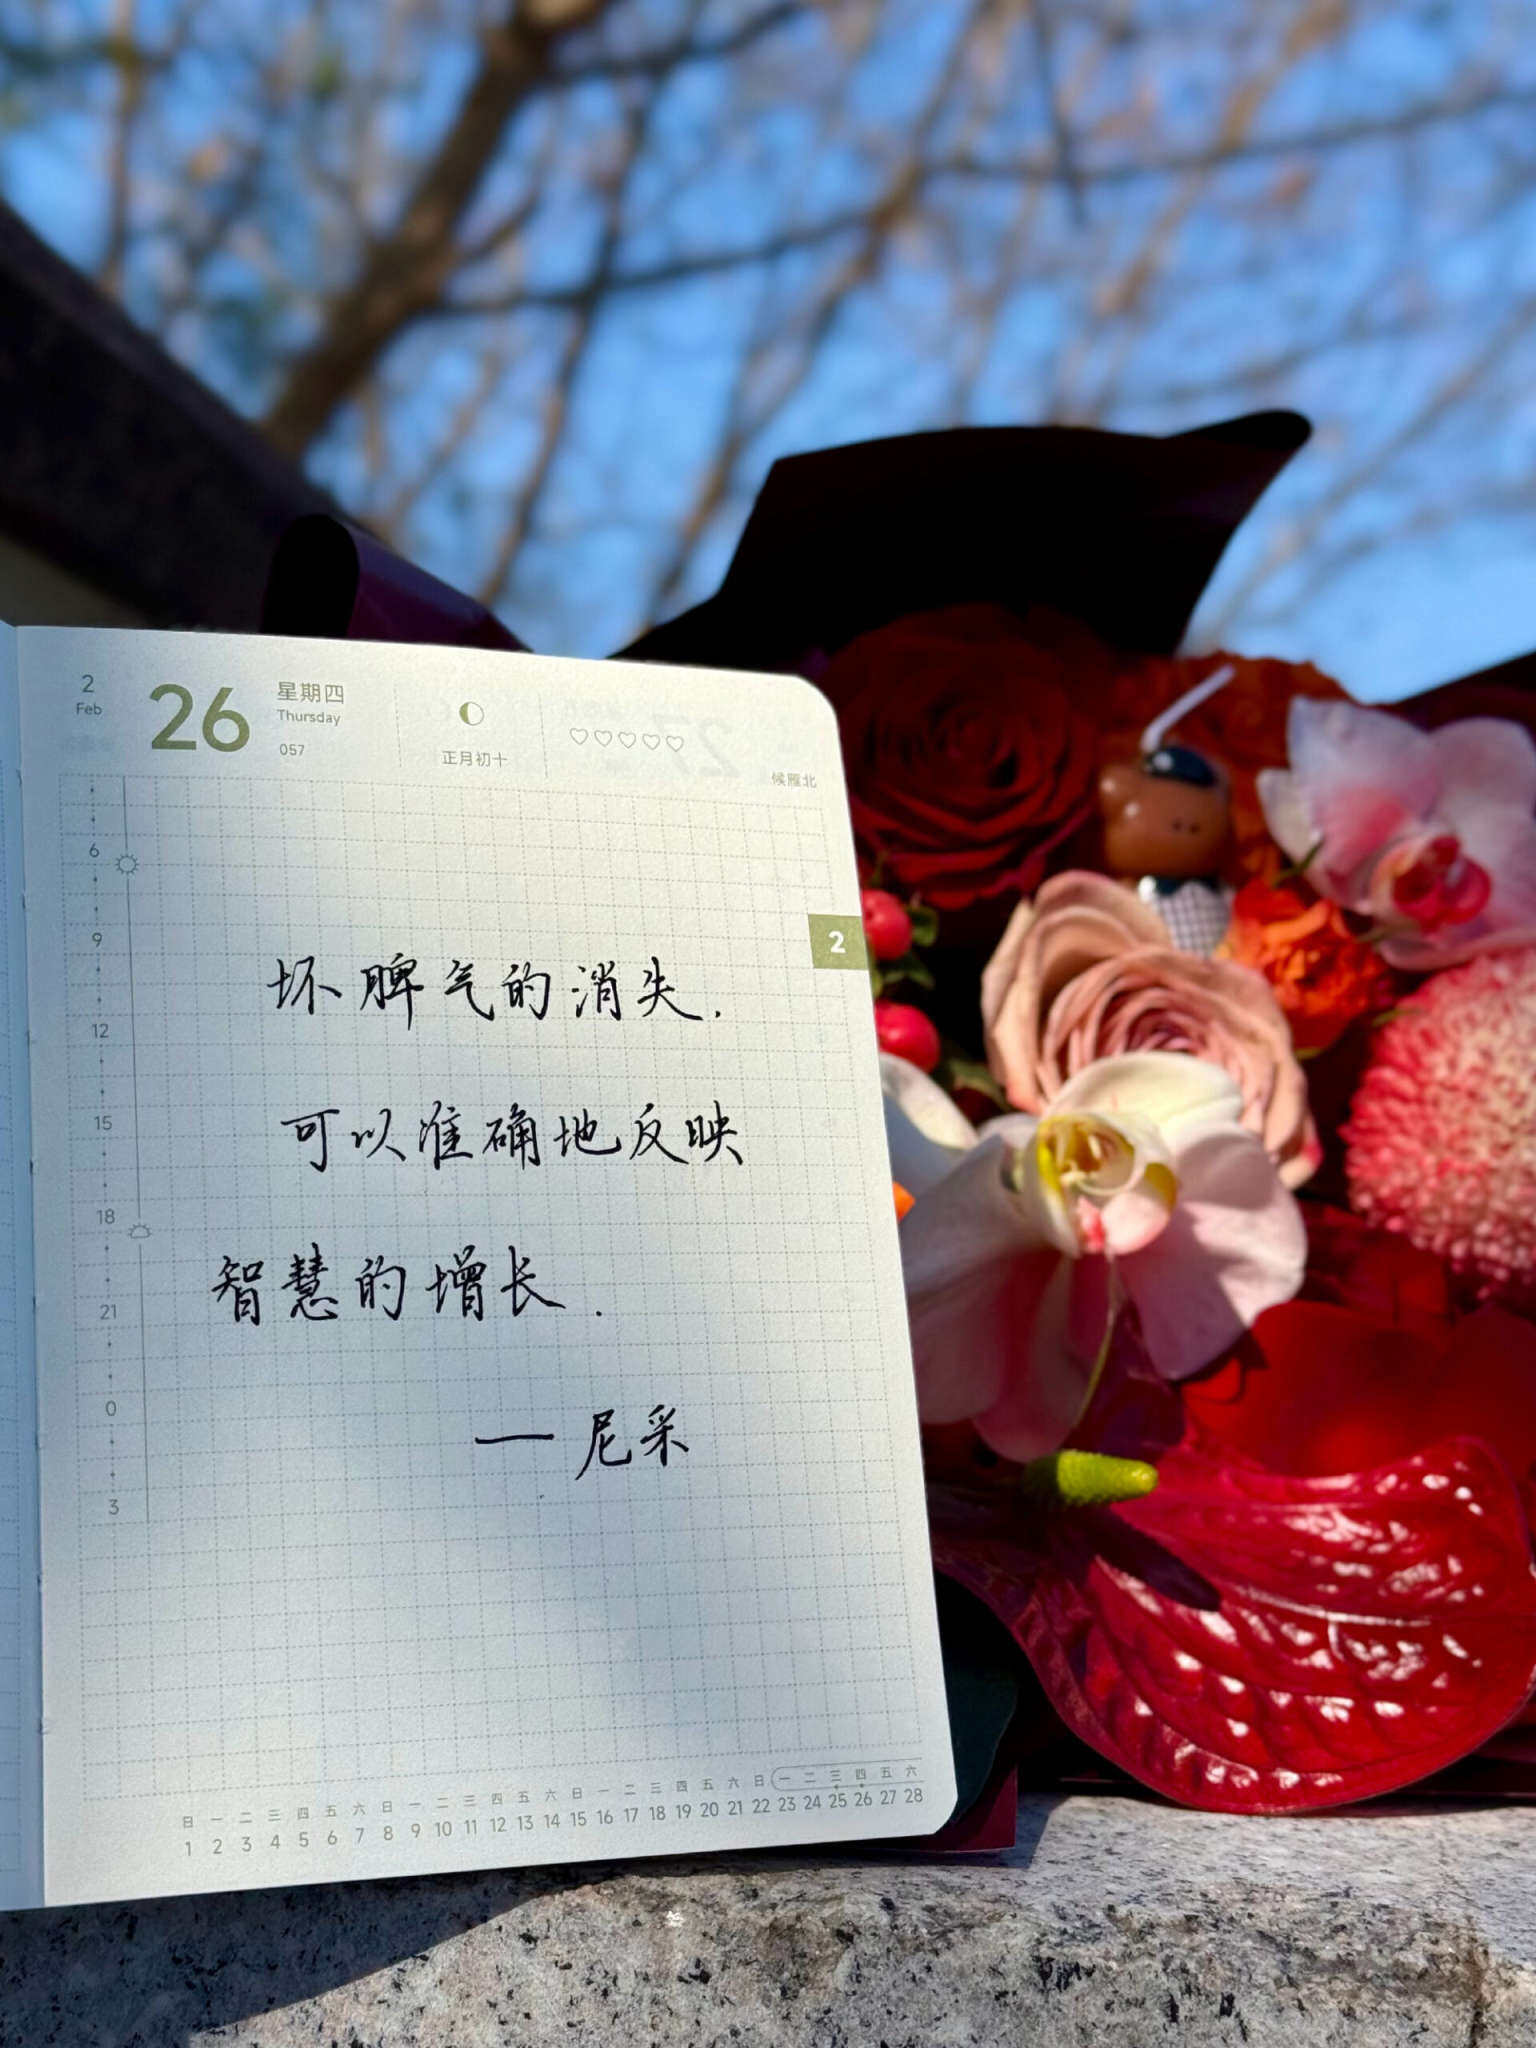 2
Feb
26
星期四
Thursday
057
正月初十
候雁北
2
6
9
12
15
18
21
0
3
坏脾气的消失.
可以准确地反映
智慧的增长.
—尼采
日 一 二 三 四 五 六 日 一 二 三 四 五 六 日 一 二 三 四 五 六 日 一 二 三 四 五 六
1 2 3 4 5 6 7 8 9 10 11 12 13 14 15 16 17 18 19 20 21 22 23 24 25 26 27 28